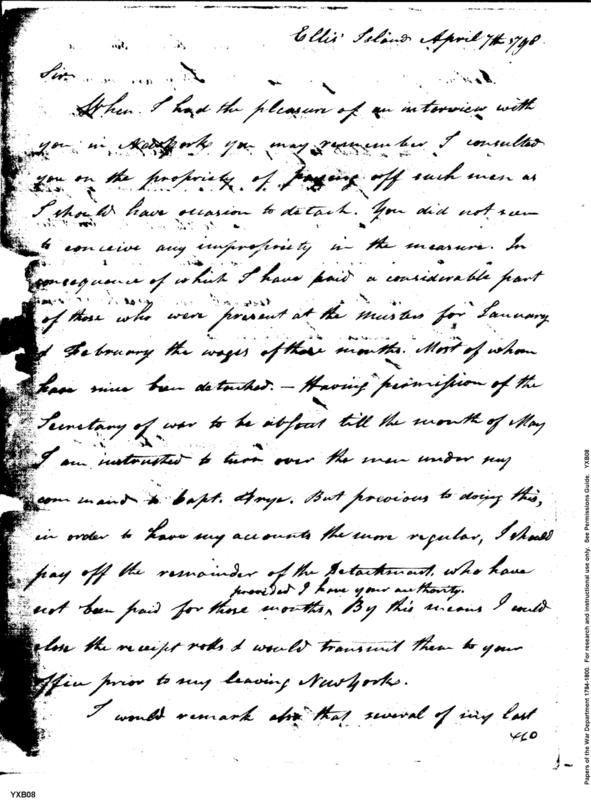 Ellis' Island April 7th 1798.
Sir
When I had the pleasure of an interview with
you in New York you may remember I consulted
you on the propriety of paying off such men as
I should have occasion to detach. You did not seem
to conceive any impropriety in the measure. In
consequence of which I have paid a considerable part
of those who were present at the musters for January
& February the wages of those months. Most of whom
have since been detached. — Having permission of the
Secretary of war to be absent till the month of May
I am instructed to turn over the men under my
command to Capt. Frye. But previous to doing this,
in order to have my accounts the more regular, I should
pay off the remainder of the Detachment, who have
provided I have your authority.
not been paid for those months, By this means I could
close the receipt rolls & would transmit them to your
office prior to my leaving New York.
I would remark also that several of my last
YXB08
Papers of the War Department 1784-1800. For research and instructional use only. See Permissions Guide. YXB08